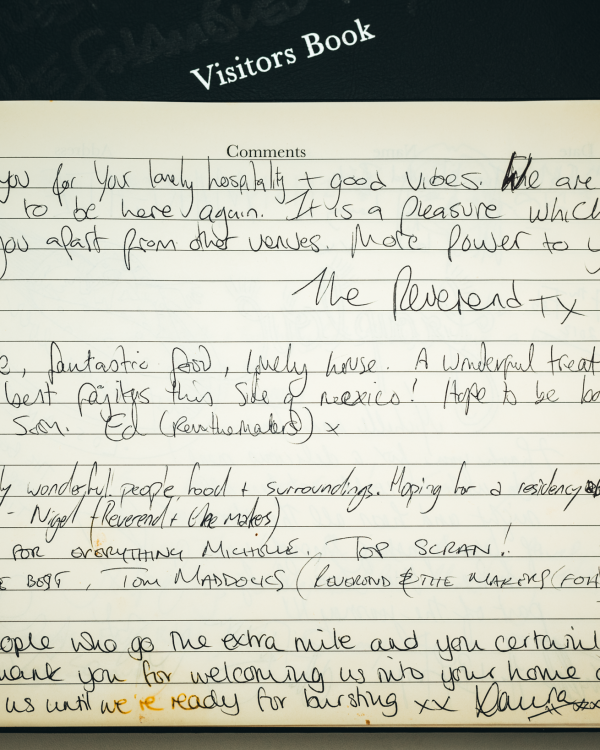 Visitors Book
Comments
you for your lovely hospitality + good vibes. We are
to be here again. It is a pleasure which
you apart from other venues. More power to
The Reverend TX
, fantastic food, lovely house. A wonderful treat
best fajitas this side of mexico! Hope to be
Soon. Ed (Rev+themakers) x
wonderful people, food + surroundings. Hoping for a residency
- Nigel (Reverend + the makers)
FOR EVERYTHING MICHELLE. TOP SCRAN!
BEST, TOM MADDOCKS (REVEREND & THE MAKERS (FOH
people who go the extra mile and you certainl
hank you for welcoming us into your home
us until we're ready for bursting xx Laura xxx